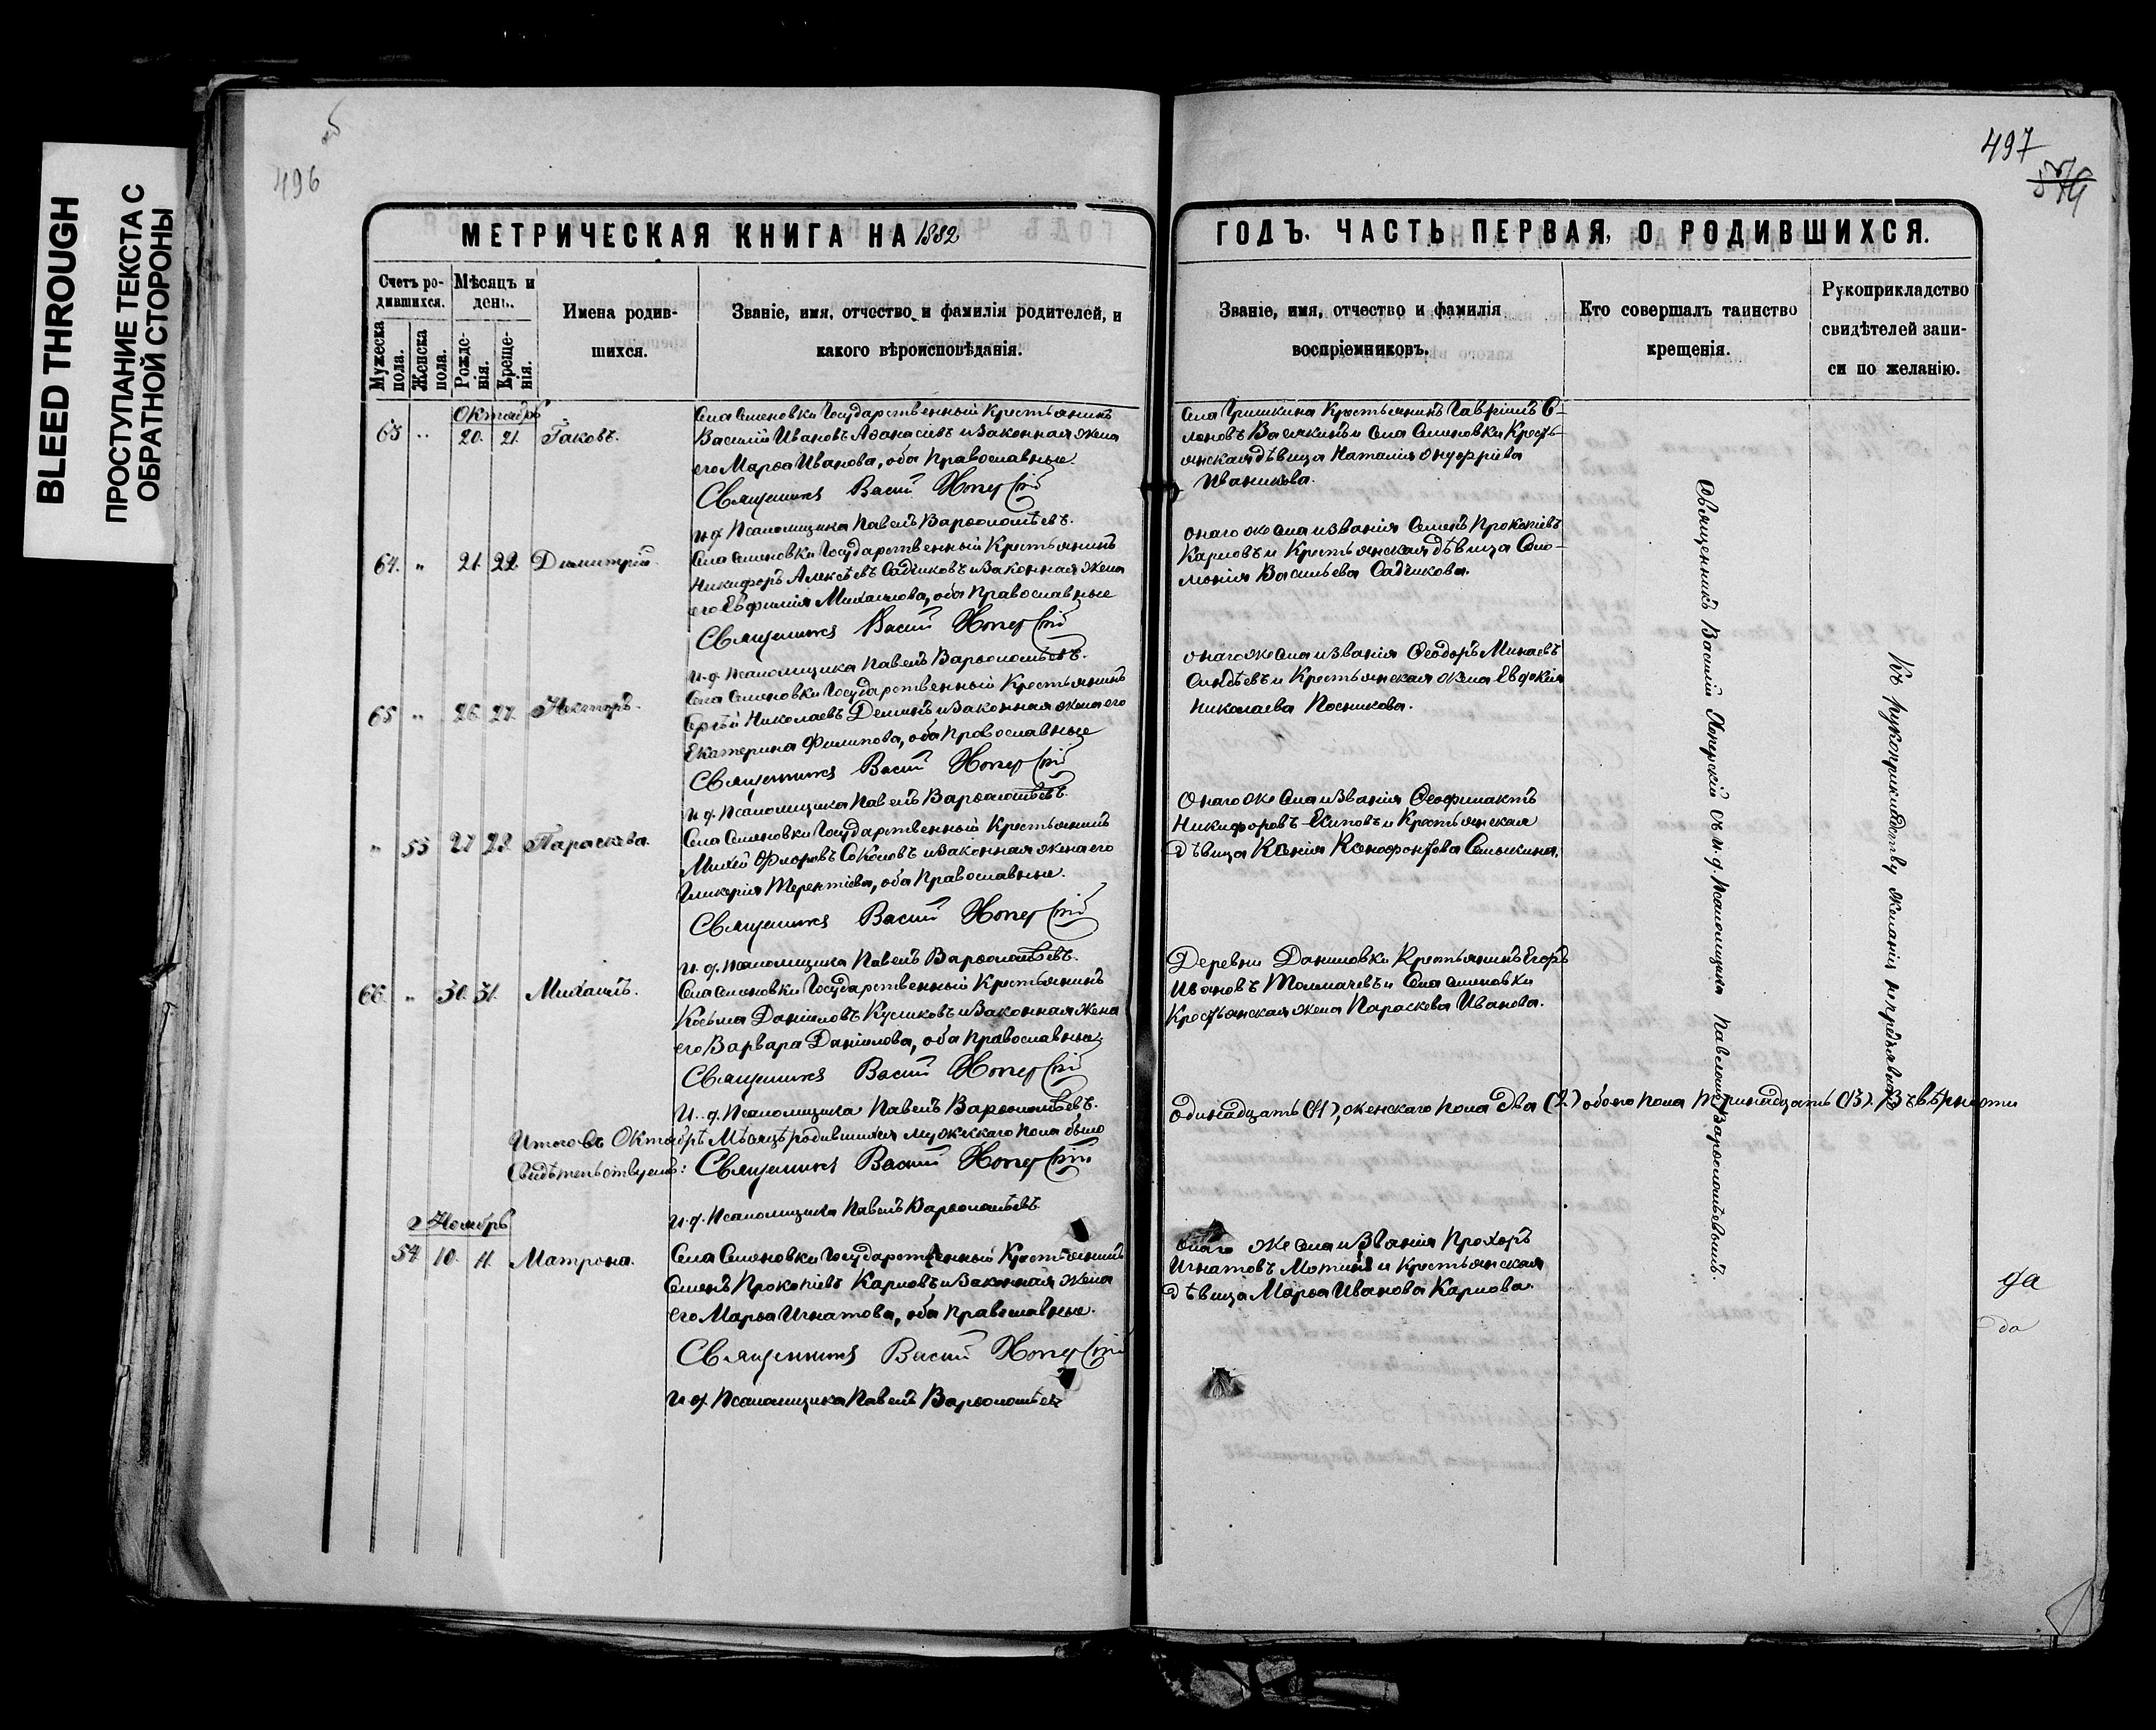 BLEED THROUGH
ПРОСТУПАНИЕ ТЕКСТА С
ОБРАТНОЙ СТОРОНЫ
496
497
МЕТРИЧЕСКАЯ КНИГА НА 1882
ГОДЪ. ЧАСТЬ ПЕРВАЯ, О РОДИВШИХСЯ.
Счетъ ро-
дившихся.
Мужеска
пола.
Женска
пола.
Мѣсяцъ и
день.
Рожде-
нія.
Креще-
нія.
Имена родив-
шихся.
Званіе, имя, отчество и фамилія родителей, и
какого вѣроисповѣданія.
Званіе, имя, отчество и фамилія
воспріемниковъ.
Кто совершалъ таинство
крещенія.
Рукоприкладство
свидѣтелей запи-
си по желанію.
Октябрь
63 " 20. 21. Іаковъ.
Села Семеновки Государственный Крестьянинъ
Василій Ивановъ Аѳанасіевъ и Законная жена
его Марѳа Иванова, оба Православные.
Священникъ Васил Хопер
и. д. Псаломщика Павелъ Варѳоломѣевъ.
Села Гришкина Крестьянинъ Гавріилъ
и Села Семеновки Кресть-
янская дѣвица Наталія Онуфріева
Иваникова.
64. " 21. 22. Димитрій.
Села Семеновки Государственный Крестьянинъ
Никифоръ Алексѣевъ Садчиковъ и Законная жена
его Евфимія Михаилова, оба Православные
Священникъ Васил Хопер
и. д. Псаломщика Павелъ Варѳоломѣевъ.
онаго же села и званія Семенъ Прокопіевъ
Карповъ и Крестьянская дѣвица Соло-
монія Васильева Садчикова.
65 " 26. 27. Несторъ.
Села Семеновки Государственный Крестьянинъ
Сергѣй Николаевъ Деминъ и Законная жена его
Екатерина Филипова, оба Православные
Священникъ Васил Хопер
и. д. Псаломщика Павелъ Варѳоломѣевъ.
онаго же села и званія Ѳеодоръ Минаевъ
и Крестьянская жена Евдокія
Николаева Посникова.
" 53 27 28. Параскева.
Села Семеновки Государственный Крестьянинъ
Михей Флоровъ Соколовъ и Законная жена его
Гликерія Терентіева, оба Православные.
Священникъ Васил Хопер
и. д. Псаломщика Павелъ Варѳоломѣевъ.
Онаго же Села и Званія Ѳеофилактъ
Никифоровъ и Крестьянская
дѣвица Ксенія Ксенофонтова
66. " 30. 31. Михаилъ.
Села Семеновки Государственный Крестьянинъ
Косьма Даніиловъ Куликовъ и Законная Жена
его Варвара Даніилова, оба Православные.
Священникъ Васил Хопер
и. д. Псаломщика Павелъ Варѳоломѣевъ.
Деревни Даниловки Крестьянинъ Егоръ
Ивановъ Толмачевъ и Села Семеновки
Крестьянская жена Параскева Иванова.
Итого въ Октябрѣ Мѣсяцѣ родившихся мужескаго пола было
одинадцать (11), женскаго пола два (2) обоего пола тринадцать (13). Въ вѣрности
Свидѣтельствуемъ: Священникъ Васил Хопер
и. д. Псаломщика Павелъ Варѳоломѣевъ
Ноябрь
54 10. 11. Матрона.
Села Семеновки Государственный Крестьянинъ
Семенъ Прокопіевъ Карповъ и Законная жена
его Марѳа Игнатова, оба Православные.
Священникъ Васил Хопер
и. д. Псаломщика Павелъ Варѳоломѣевъ
онаго же села и Званія Прохоръ
Игнатовъ Мотинъ и Крестьянская
дѣвица Марѳа Иванова Карпова.
Священникъ Василій Хоперскій съ и. д. Псаломщика Павелом Варѳоломѣевымъ.
Къ рукоприкладству желанія не предъявлено
да
да